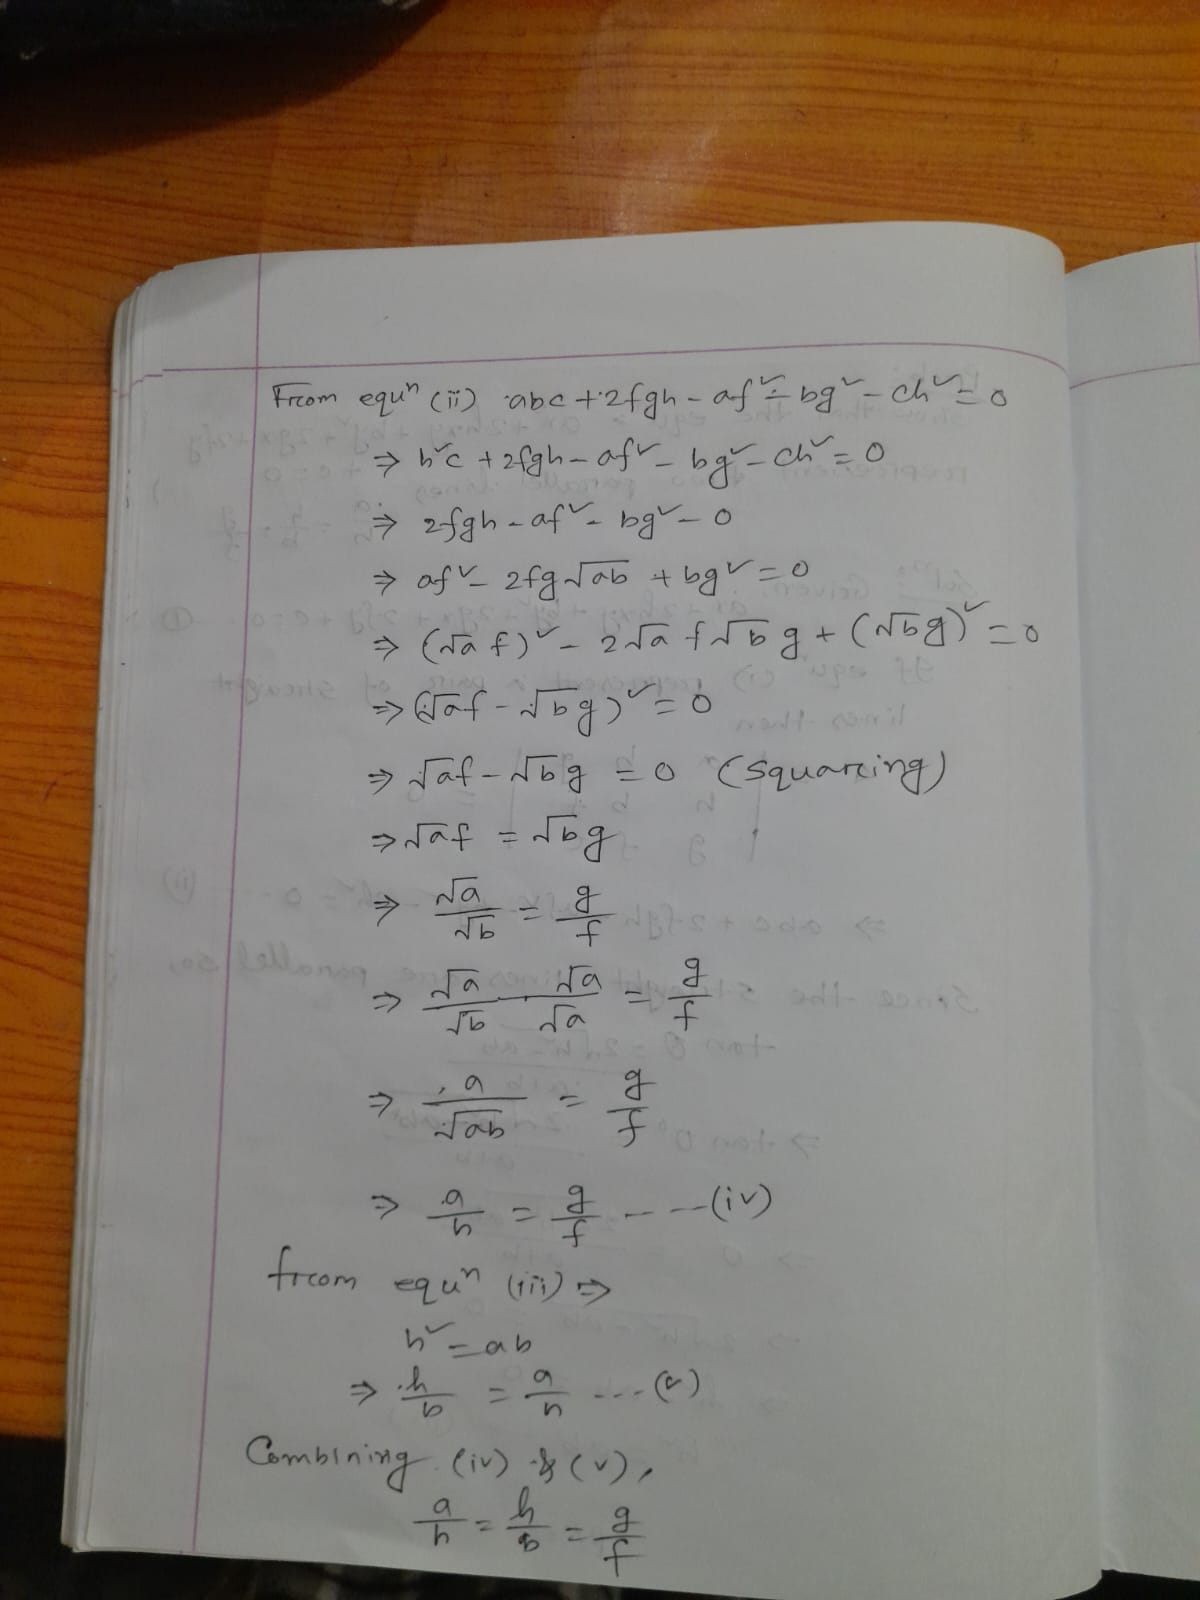 From equⁿ (ii) abc + 2fgh - af² - bg² - ch² = 0
⇒ h²c + 2fgh - af² - bg² - ch² = 0
⇒ 2fgh - af² - bg² - 0
⇒ af² - 2fg√ab + bg² = 0
⇒ (√a f)² - 2√a f√b g + (√bg)² = 0
⇒ (√af - √bg)² = 0
⇒ √af - √bg = 0 (squareing)
⇒ √af = √bg
⇒ √a/√b = g/f
⇒ √a/√b . √a/√a = g/f
⇒ a/√ab = g/f
⇒ a/h = g/f - - - - (iv)
from equⁿ (iii) ⇒
h² = ab
⇒ h/b = a/h ... (v)
Combining (iv) & (v),
a/h = h/b = g/f